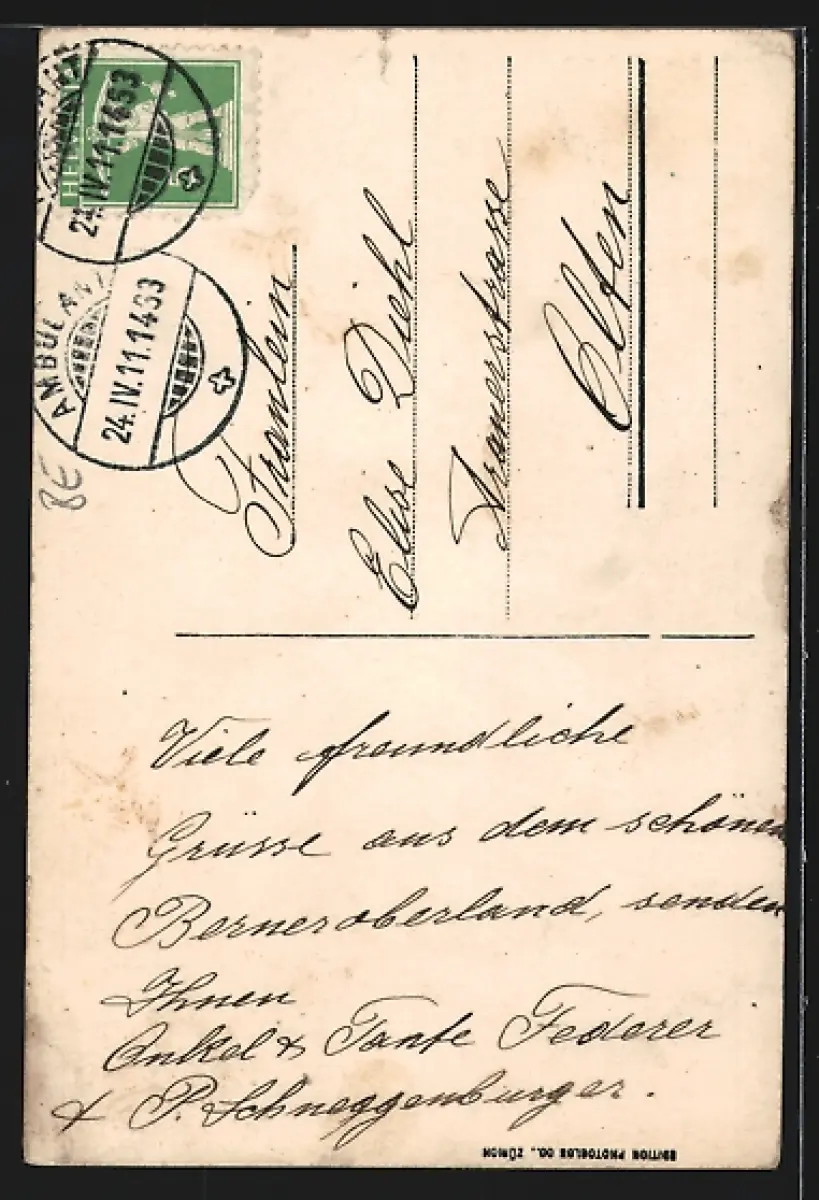 HELV
5
24.IV.11.1453
AMBULANT
24.IV.11.1453
BE
Fraulein
Elise Diehl
Aarauerstrasse
Olten
Viele freundliche
Grüsse aus dem schönen
Berneroberland, senden
Ihnen
Onkel & Tante Federer
& P. Schneggenburger.
EDITION PHOTOGLOB CO., ZÜRICH